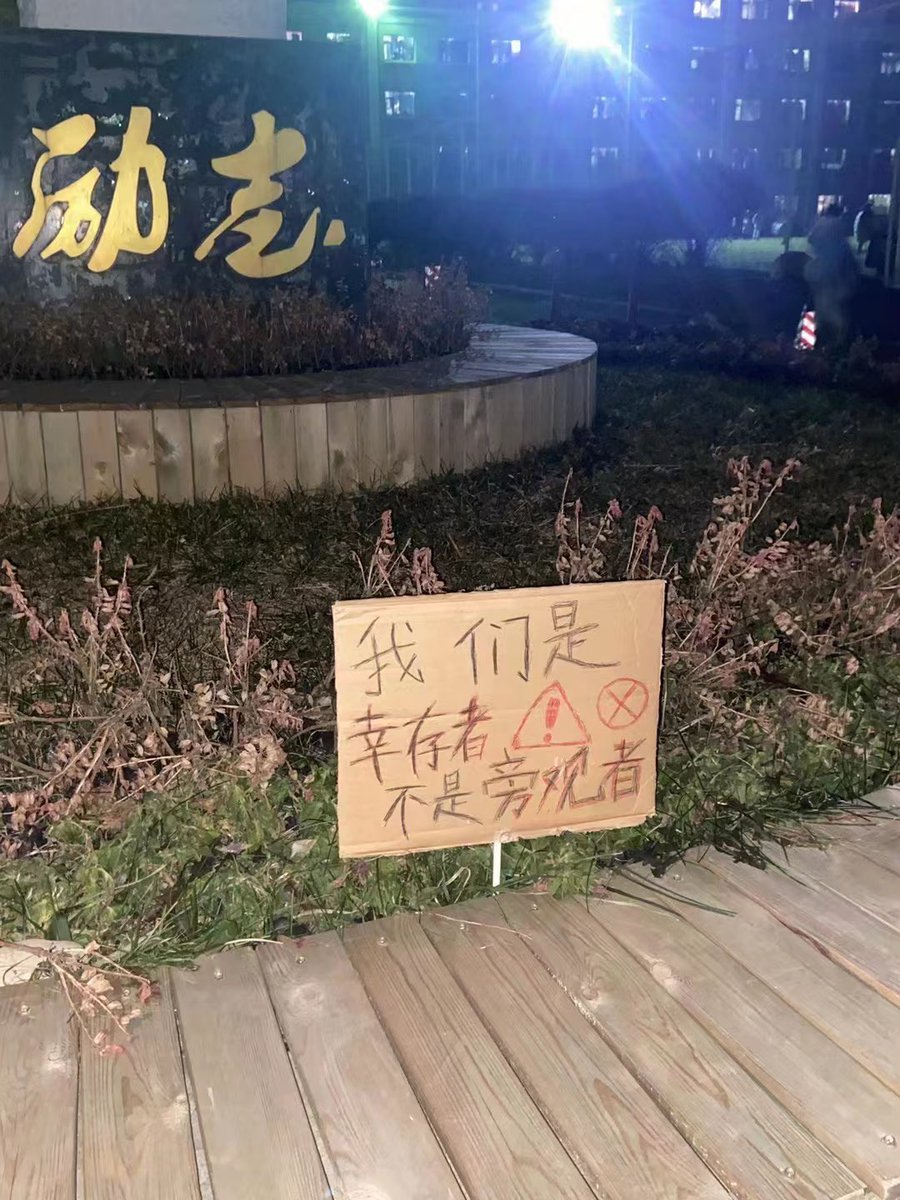 励志
我们是
幸存者
不是旁观者